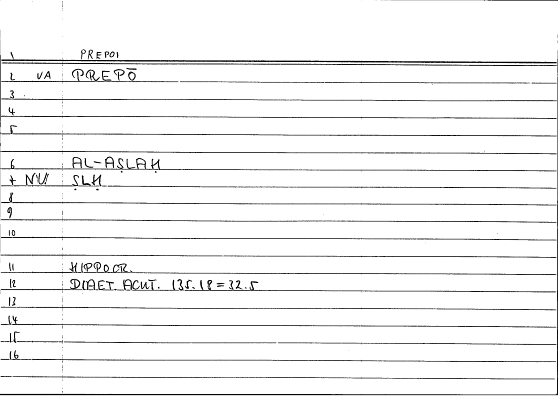 1 PREPOI
2 VA PREPŌ
3
4
5
6 AL-AṢLAḤ
+ NU ṢLḤ
8
9
10
11 HIPPOCR.
12 DIAET. ACUT. 135.18=32.5
13
14
15
16